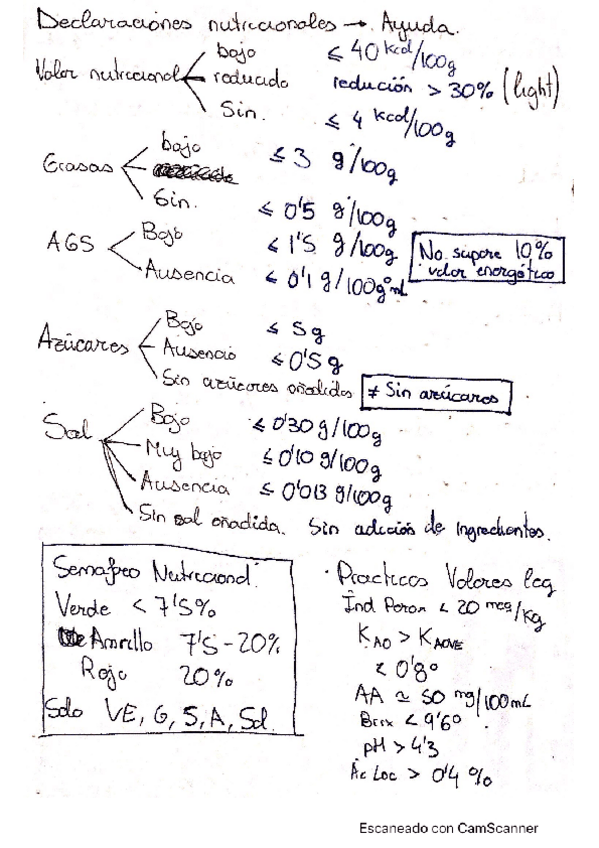 Declaraciones nutricionales → Ayuda.
Valor nutricional
bajo ≤ 40 kcal/100g
reducido redución > 30% (light)
Sin. ≤ 4 kcal/100g
Grasas
bajo ≤ 3 g/100g
Sin. ≤ 0'5 g/100g
AGS
Bajo ≤ 1'5 g/100g
Ausencia ≤ 0'1 g/100g o mL
No supere 10%
valor energético
Azúcares
Bajo ≤ 5g
Ausencia ≤ 0'5g
Sin azúcares añadidos ≠ Sin azúcares
Sal
Bajo ≤ 0'30 g/100g
Muy bajo ≤ 0'10 g/100g
Ausencia ≤ 0'013 g/100g
Sin sal añadida. Sin adición de ingredientes.
Semáforo Nutricional
Verde < 7'5%
Amarillo 7'5-20%
Rojo 20%
Solo VE, G, S, A, Sal.
Practicas Valores leg
Ind Perox < 20 meq/kg
K AO > K AOVE
< 0'8º
AA ≃ 50 mg/100mL
Brix < 9'6º
pH > 4'3
Ac Lac > 0'4 %
Escaneado con CamScanner